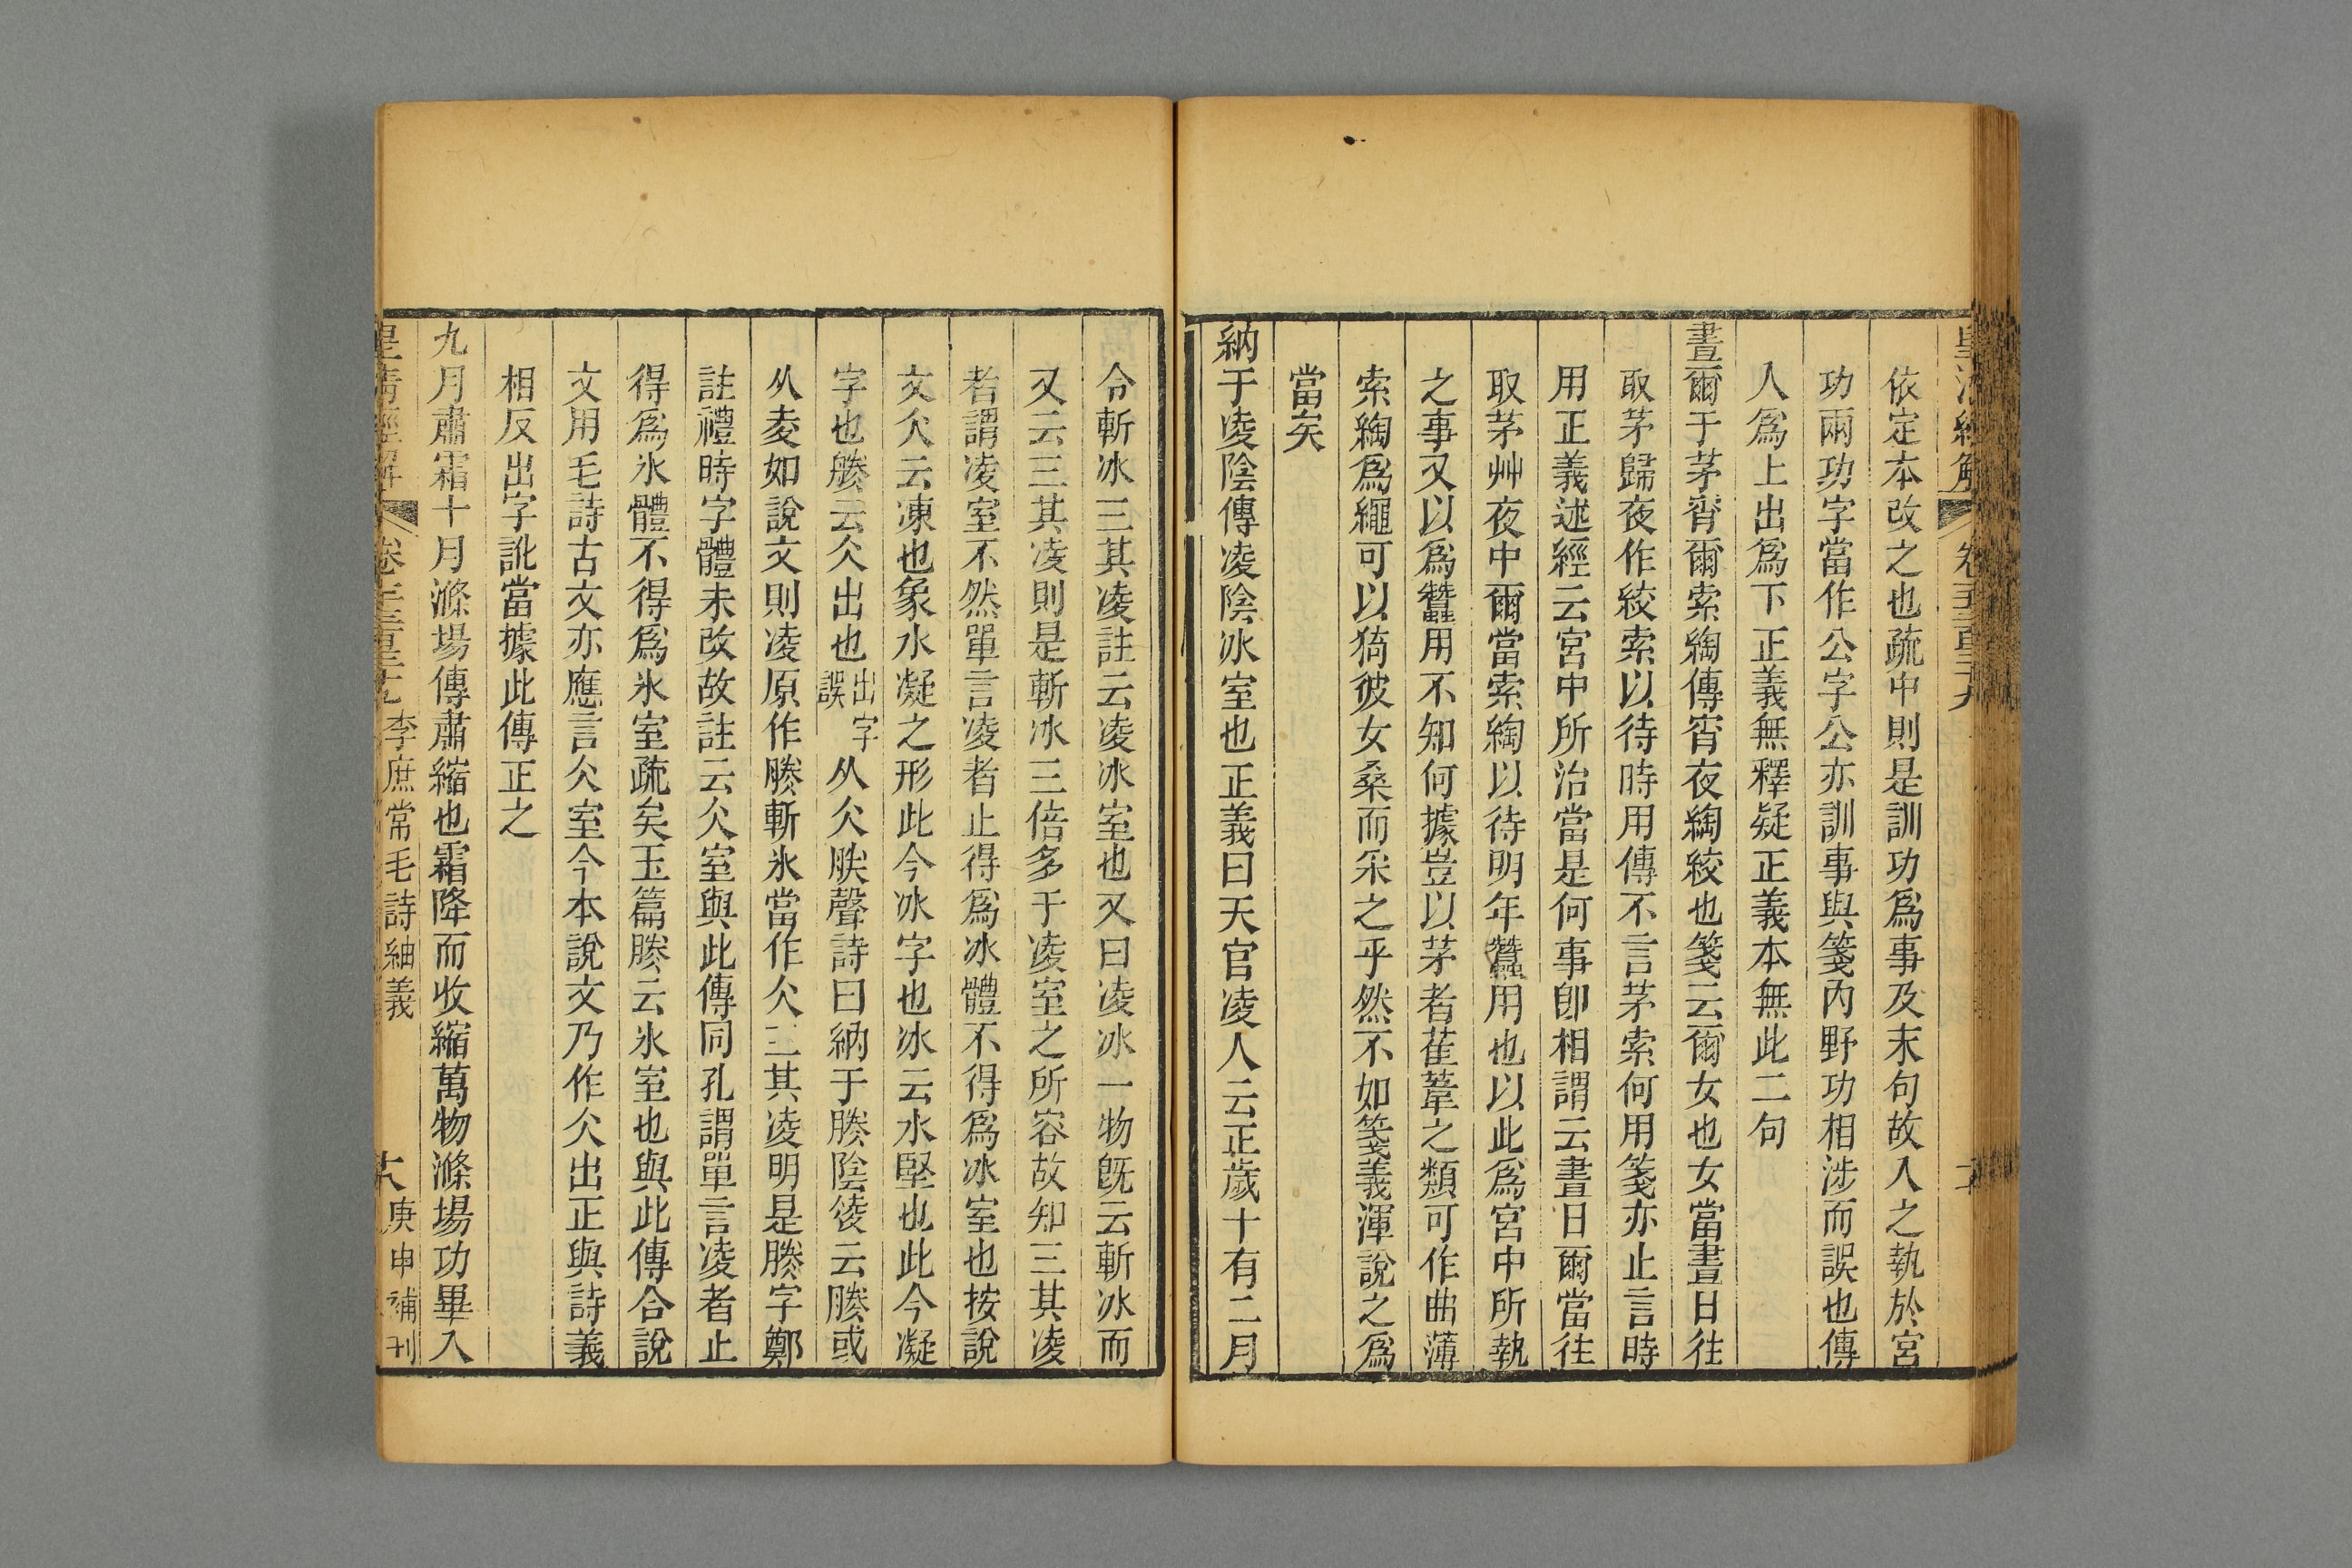 依定本改之也疏中則是訓功爲事及末句故入之執於宮
功兩功字當作公字公亦訓事與箋內野功相涉而誤也傳
入爲上出爲下正義無釋疑正義本無此二句
晝爾于茅宵爾索綯傳宵夜綯絞也箋云爾女也女當晝日往
取茅歸夜作絞索以待時用傳不言茅索何用箋亦止言時
用正義述經云宮中所治當是何事卽相謂云晝日爾當往
取茅艸夜中爾當索綯以待明年蠶用也以此爲宮中所執
之事又以爲蠶用不知何據豈以茅者萑葦之類可作曲薄
索綯爲繩可以猗彼女桑而采之乎然不如箋義渾說之爲
當矣
納于凌陰傳凌陰冰室也正義曰天官凌人云正歲十有二月
令斬冰三其凌註云凌冰室也又曰凌冰一物旣云斬冰而
又云三其凌則是斬冰三倍多于凌室之所容故知三其凌
者謂凌室不然單言凌者止得爲冰體不得爲冰室也按說
文仌云凍也象水凝之形此今冰字也冰云水堅也此今凝
字也䑞云仌出也出字誤从仌朕聲詩曰納于䑞陰夌云䑞或
从夌如說文則凌原作䑞斬氷當作仌三其凌明是䑞字鄭
註禮時字體未改故註云仌室與此傳同孔謂單言凌者止
得爲氷體不得爲氷室疏矣玉篇䑞云氷室也與此傳合說
文用毛詩古文亦應言仌室今本說文乃作仌出正與詩義
相反出字訛當據此傳正之
九月肅霜十月滌場傳肅縮也霜降而收縮萬物滌場功畢入
皇清經解 李庶常毛詩紬義 庚申補刊